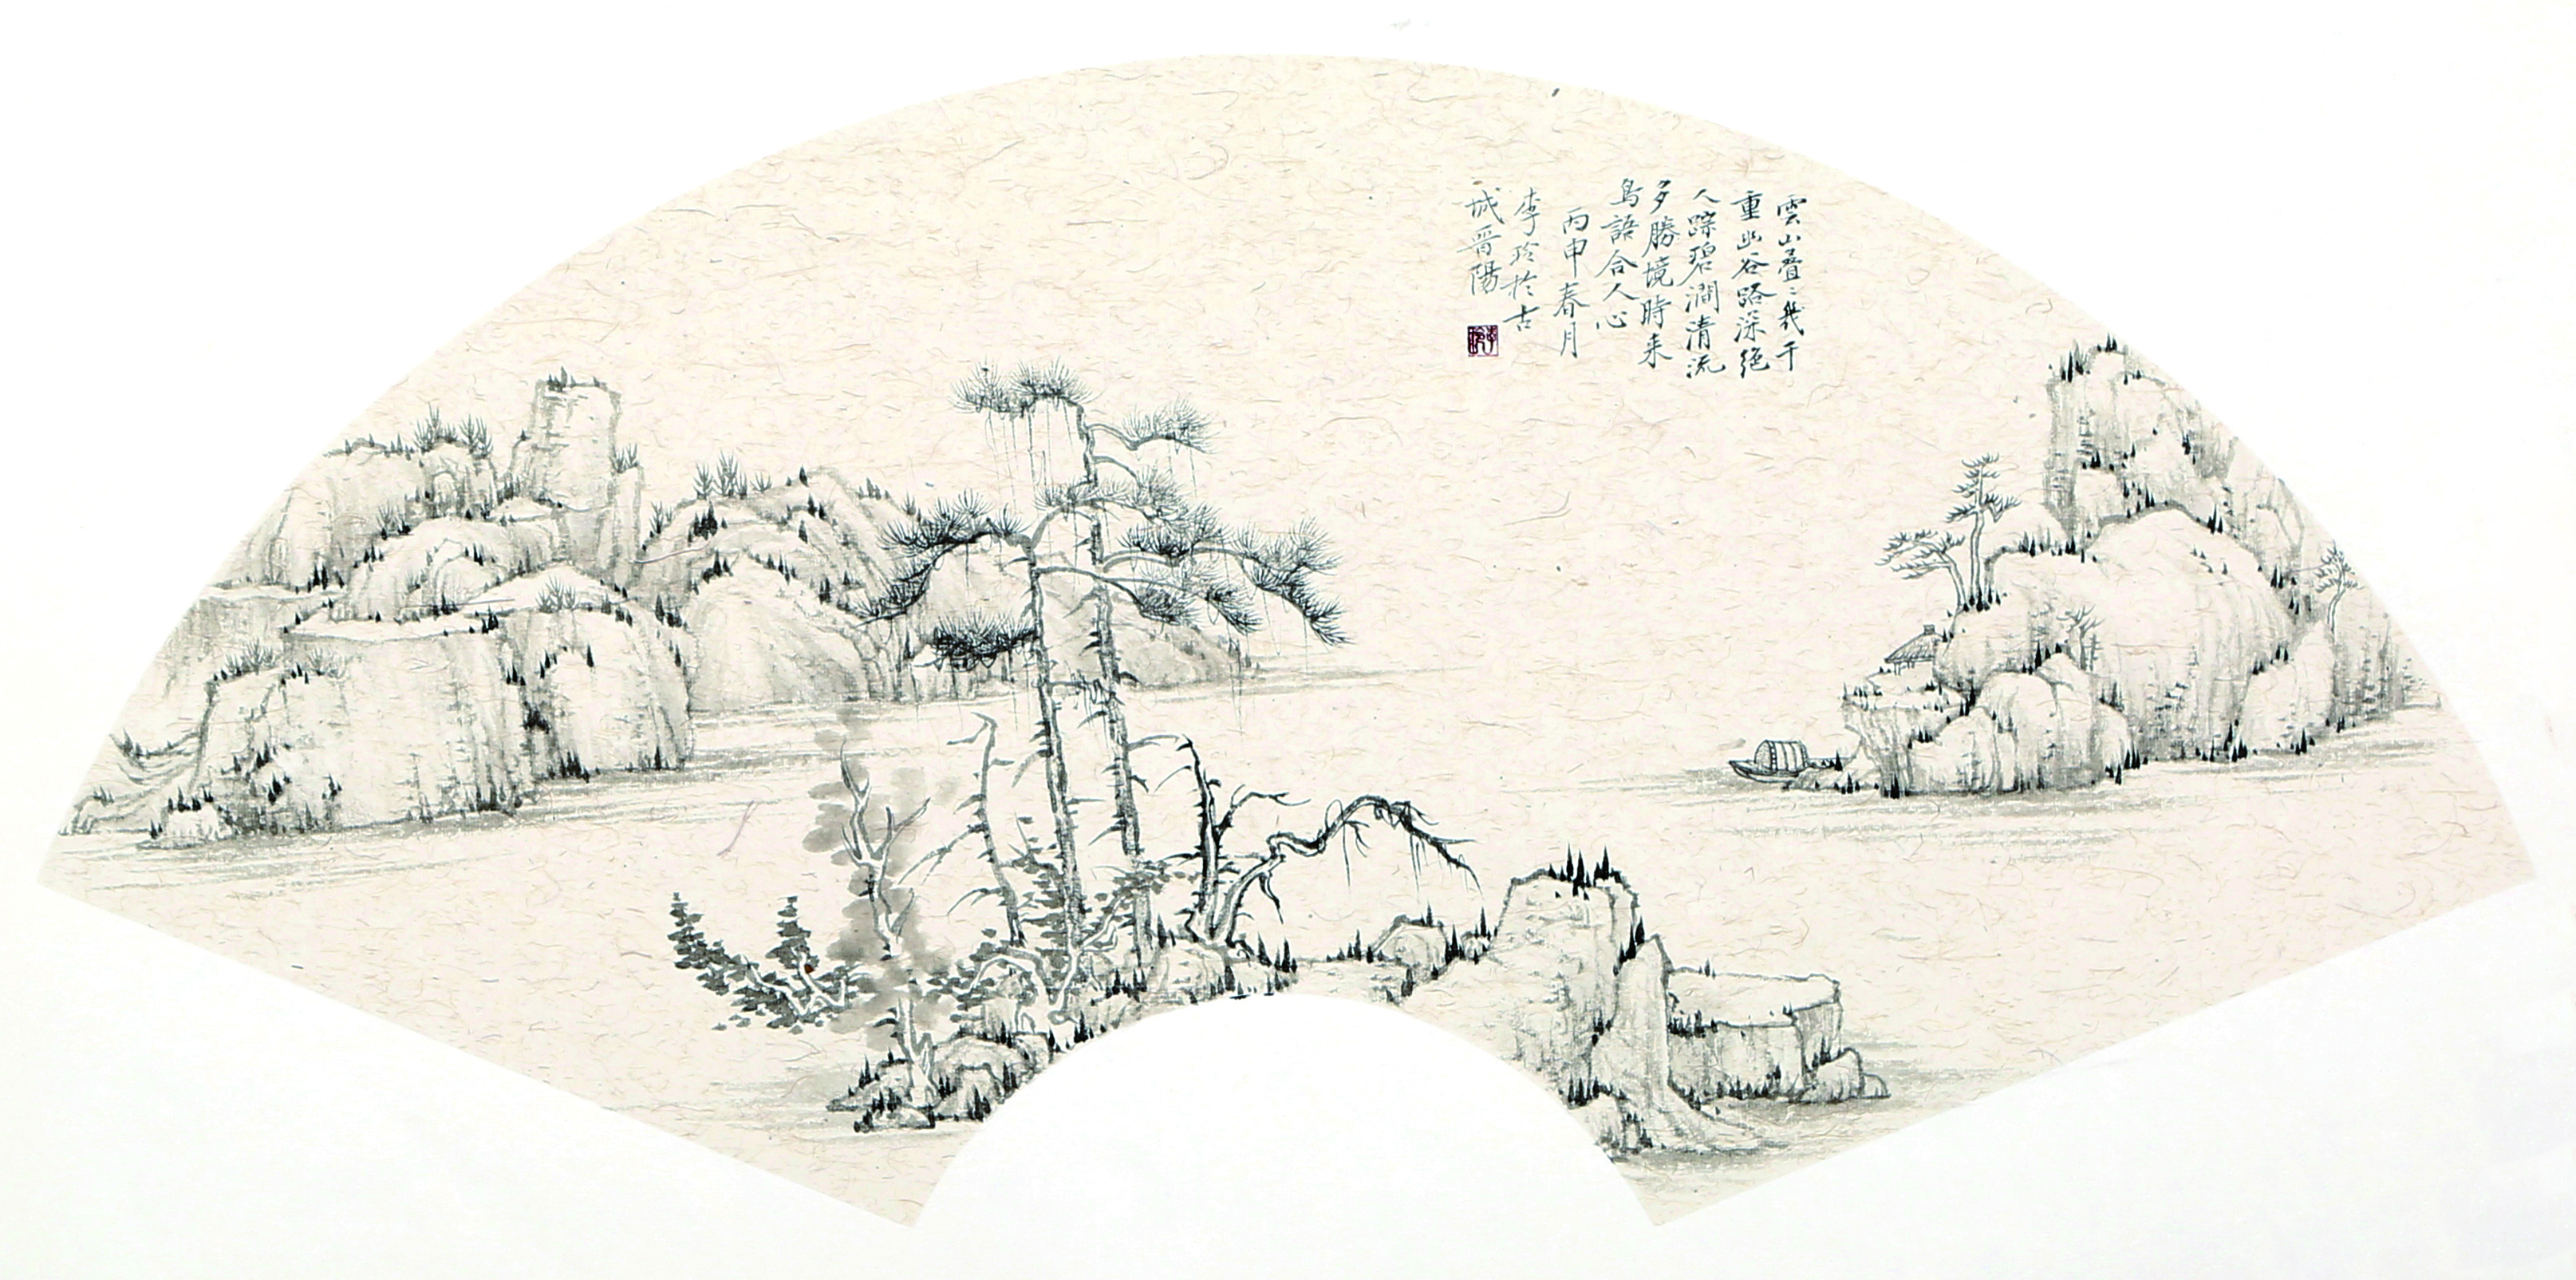 雲山叠〻幾千
重幽谷路深絕
人踪碧澗清流
多勝境時来
鳥語合人心
丙申春月
李玲於古
城晋陽